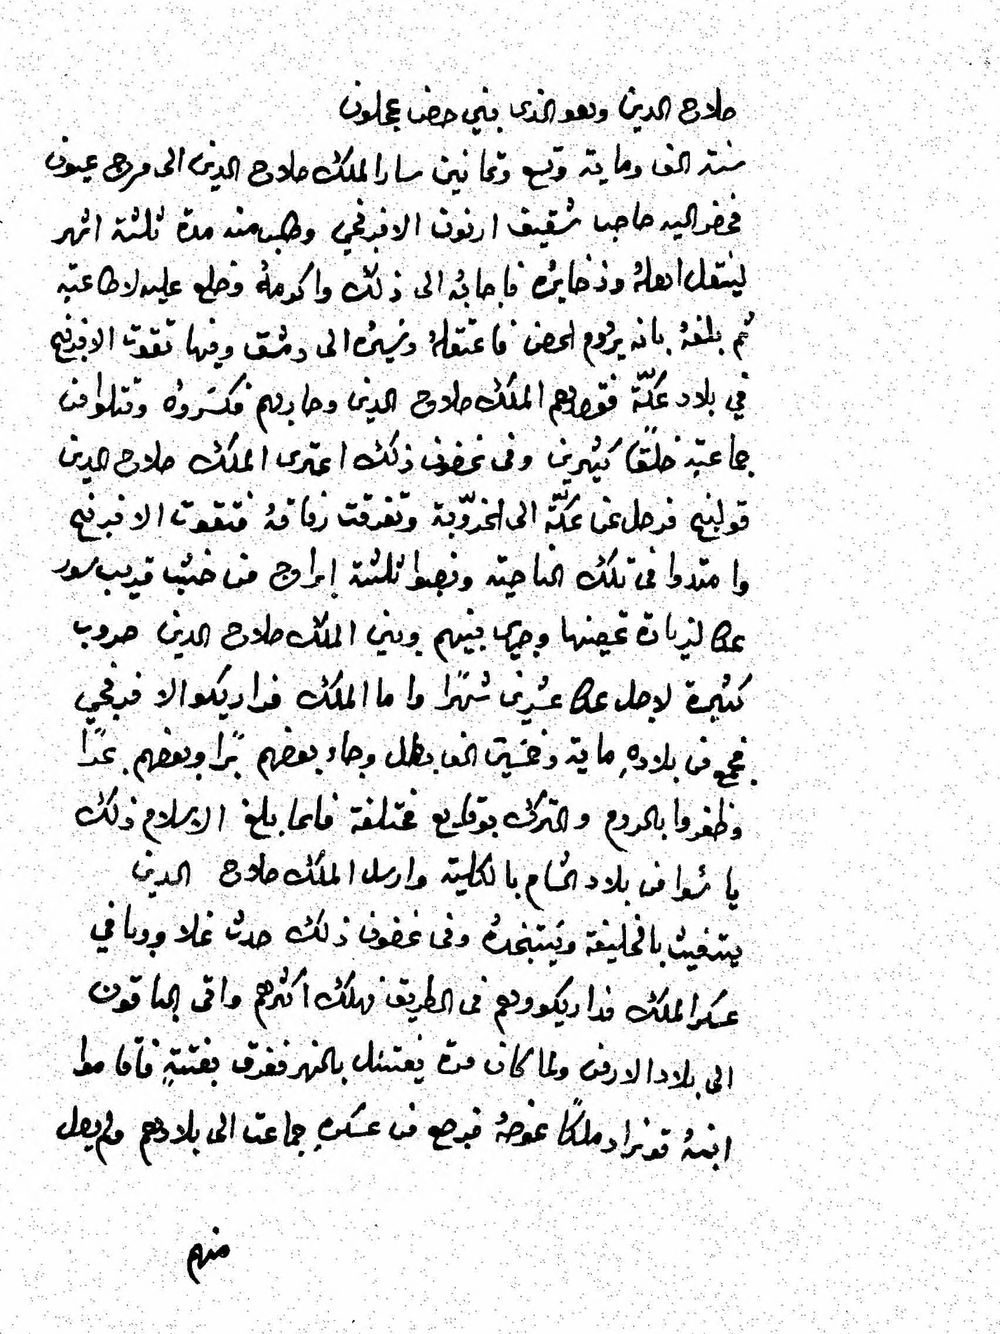 صلاح الدين وهو الذى بني حصن عجلون
سنة الف وماية وتسع وثمانين سار الملك صلاح الدين الى مرج عيون
فحضر اليه صاحب شقيف ارنون الافرنجي وطلب منه مدة ثلثة اشهر
لينتقل اهلهُ وذخايرُه فاجابهُ الى ذلك واكرمهُ وخلع عليه لاطاعته
ثم بلغهُ بانه يروم الحصن فاعتقلهُ وسيرُه الى دمشق وفيها تقوت الافرنج
في بلاد عكّة فقصدهم الملك صلاح الدين وحاربهم فكسروه وقتلوا من
جماعته خلقًا كثيرين وفى غضون ذلك اعترى الملك صلاح الدين
قولنج فرحل عن عكّة الى الخرّوبة وتفرقت رفاقهُ فتقوت الافرنج
وامتدوا فى تلك الناحية ونصبوا ثلثة ابراج من خشب قريب سور
عكا لزيادة تحصينها وجرى بينهم وبين الملك صلاح الدين حروب
كثيرة لاجل عكا عشرين شهرًا واما الملك فداريكو الافرنجي
فجمع من بلادهِ ماية وخمسين الف بطل وجاء بعضهم برًا وبعضهم بحرًا
وظفروا بالروم والترك بوقايع مختلفة فلما بلغ الاسلام ذلك
يائسوا من بلاد الشام بالكلية وارسل الملك صلاح الدين
يستغيث بالخليفة ويستنجدهُ وفى غضون ذلك حدث غلا ووبا في
عسكر الملك فداريكو وهم فى الطريق فهلك اكثرهم واتى الباقون
الى بلاد الارمن ولما كان مرة يغتسل بالنهر فغرق بغتةٍ فاقاموا
ابنهُ قونراد ملكًا عوضهُ فرجع من عسكرهِ جماعة الى بلادهم ولم يصل
منهم